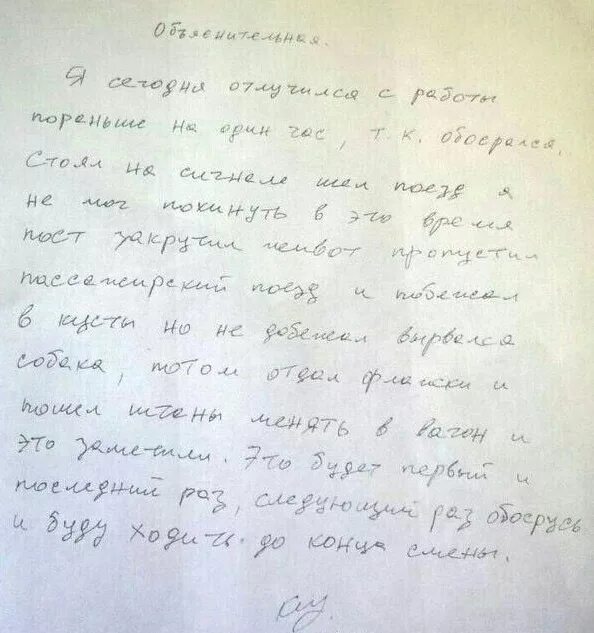 Объяснительная.
Я сегодня отлучился с работы
пораньше на один час, т.к. обосрался.
Стоял на сигнале шел поезд я
не мог покинуть в это время
пост закрутил живот пропустил
пассажирский поезд и побежал
в кусты но не добежал вырвался
собака, потом отдал флажки и
пошел штаны менять в вагон и
это заметили. Это будет первый и
последний раз, следующий раз обосрусь
и буду ходить до конца смены.